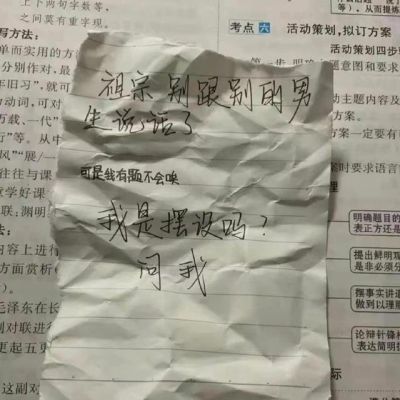 上下两句字数等,
之间莫有重字现。
写方法:
单而实用的方法
分别作对,最
旧习",就可
动词,可对
万载,一代"
往往与课
章学好课
联:渊明
内容上进行
方面赏析(
毛泽东在长
副对联进行
更起五更
这副对
祖宗 别跟别的男
生说话了
可是我有题不会唉
我是摆设吗?
问我
考点六 活动策划,拟订方案
活动策划四步
题意图和要求
动主题内容及
方案一定要有
案时要求语言
明确题目的
表正方还是
提出鲜明观
是非必须分
摆事实讲道
做到以理服
论辩针锋相
表达简明扼
际